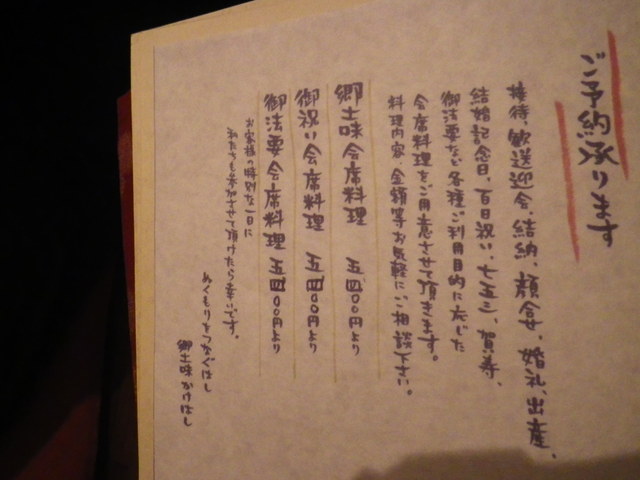 ご予約承ります
接待、歓送迎会、結納、顔合せ、婚礼、出産、
結婚記念日、百日祝い、七五三、賀寿、
御法要など各種ご利用目的に応じた
会席料理をご用意させて頂きます。
料理内容、金額等お気軽にご相談下さい。
郷土味会席料理 五、四〇〇円より
御祝い会席料理 五、四〇〇円より
御法要会席料理 五、四〇〇円より
お客様の特別な一日に
私たちも参加させて頂けたら幸いです。
ぬくもりをつなぐはし
郷土味かけはし